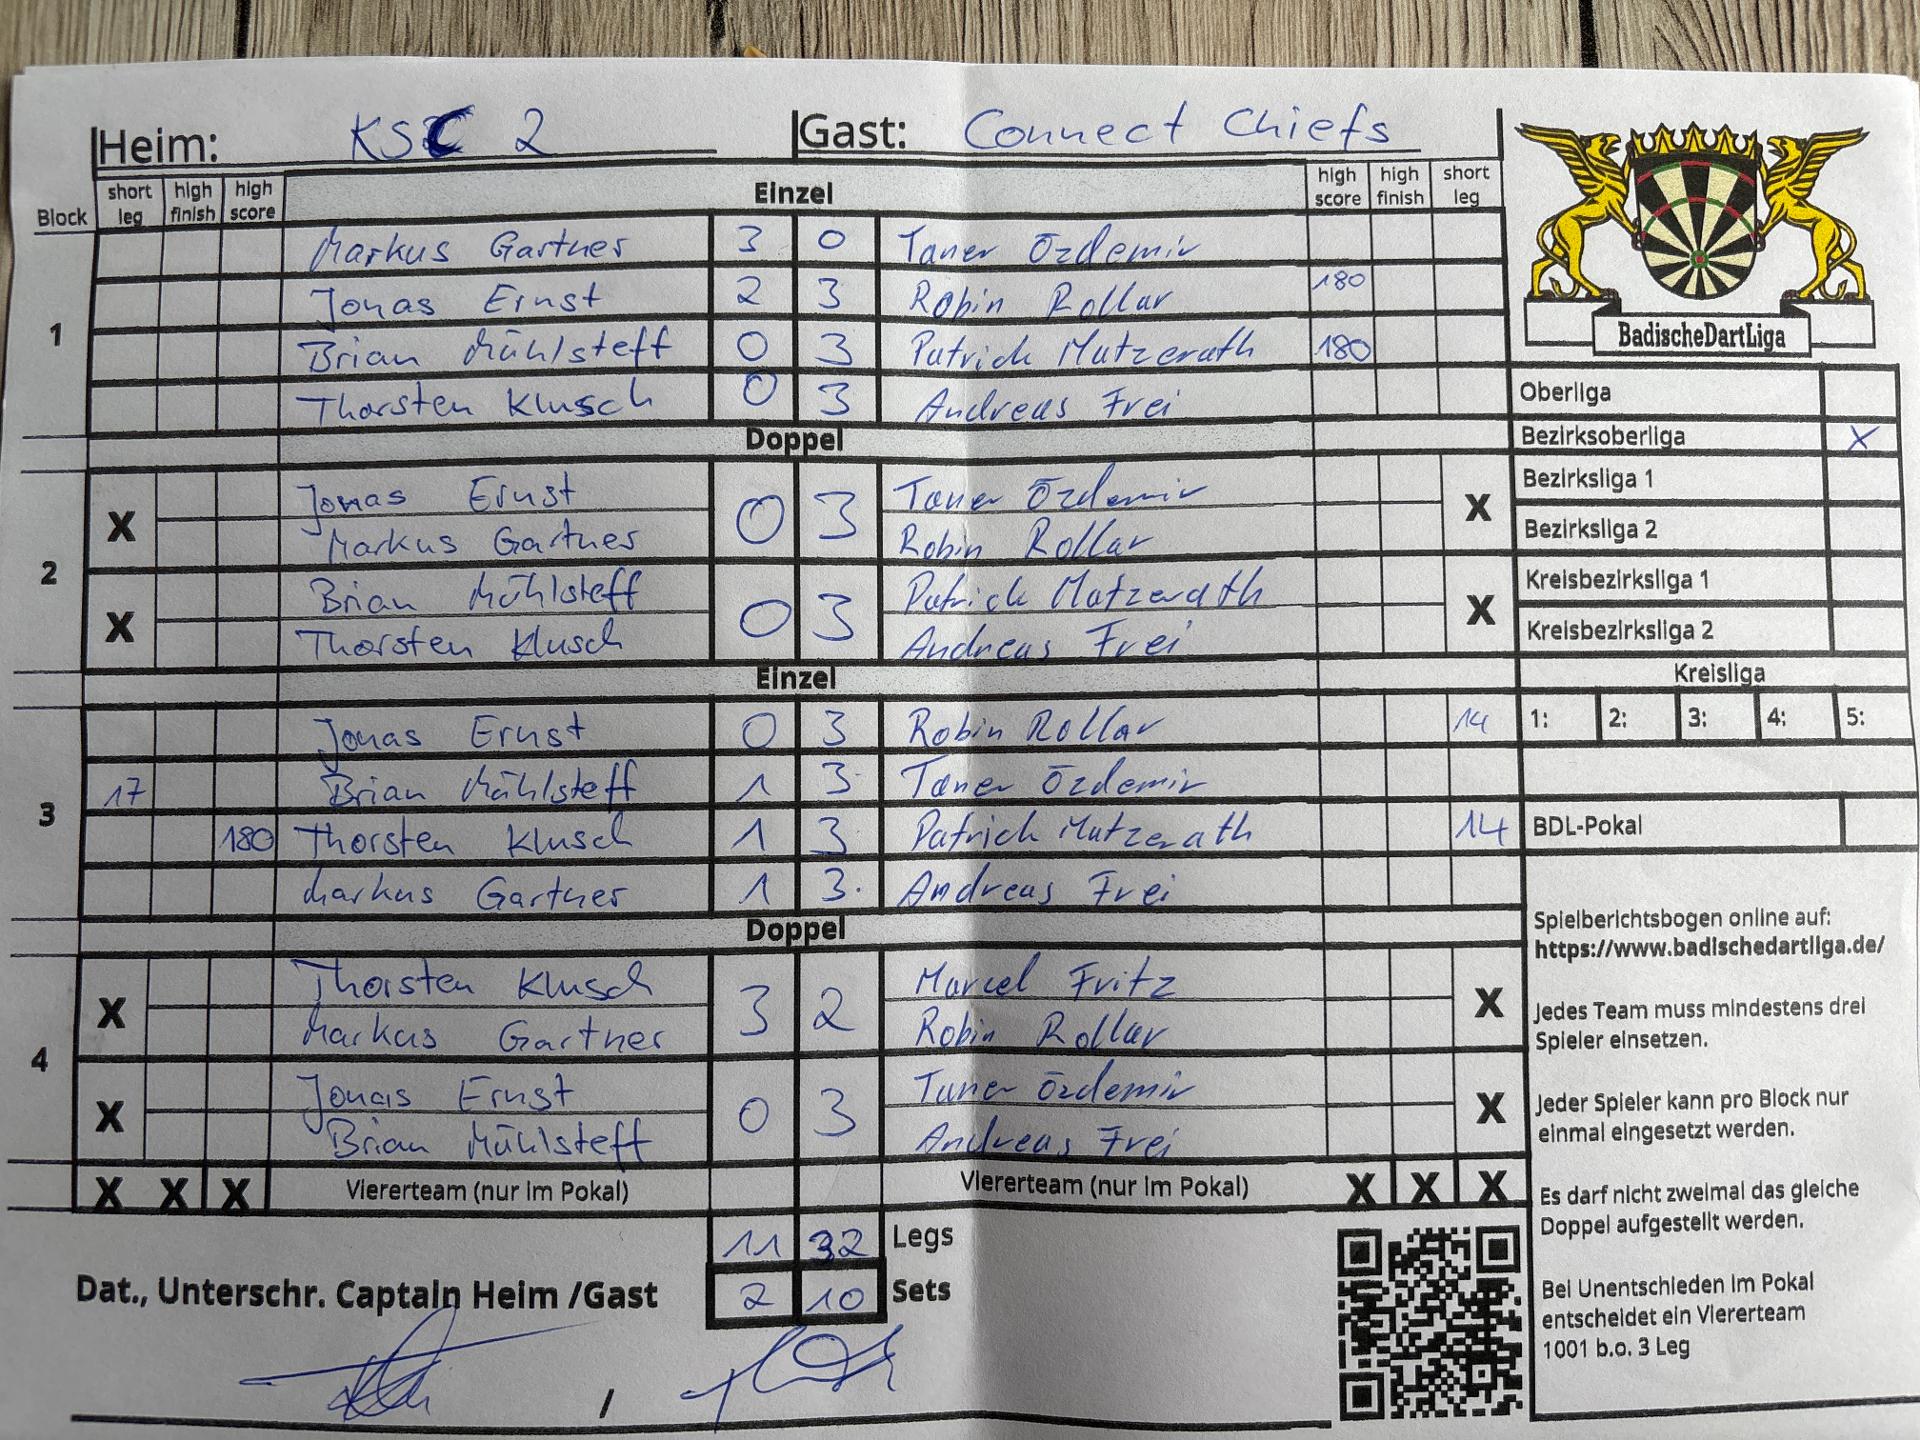 Heim: KSC 2 Gast: Connect Chiefs
Block short leg high finish high score Einzel high score high finish short leg
1
Markus Gartner 3 0 Taner Özdemir
Jonas Ernst 2 3 Robin Rollar 180
Brian Mühlsteff 0 3 Patrick Mutzerath 180
Thorsten Klusch 0 3 Andreas Frei
Doppel
2
X Jonas Ernst 0 3 Taner Özdemir X
Markus Gartner Robin Rollar
X Brian Mühlsteff 0 3 Patrick Mutzerath X
Thorsten Klusch Andreas Frei
Einzel
3
Jonas Ernst 0 3 Robin Rollar 14
17 Brian Mühlsteff 1 3 Taner Özdemir
180 Thorsten Klusch 1 3 Patrick Mutzerath 14
Markus Gartner 1 3 Andreas Frei
Doppel
4
X Thorsten Klusch 3 2 Marcel Fritz X
Markus Gartner Robin Rollar
X Jonas Ernst 0 3 Taner Özdemir X
Brian Mühlsteff Andreas Frei
X X X Viererteam (nur im Pokal) Viererteam (nur im Pokal) X X X
11 32 Legs
Dat., Unterschr. Captain Heim /Gast 2 10 Sets
/
BadischeDartLiga
Oberliga
Bezirksoberliga X
Bezirksliga 1
Bezirksliga 2
Kreisbezirksliga 1
Kreisbezirksliga 2
Kreisliga
1: 2: 3: 4: 5:
BDL-Pokal
Spielberichtsbogen online auf:
https://www.badischedartliga.de/
Jedes Team muss mindestens drei
Spieler einsetzen.
Jeder Spieler kann pro Block nur
einmal eingesetzt werden.
Es darf nicht zweimal das gleiche
Doppel aufgestellt werden.
Bei Unentschieden im Pokal
entscheidet ein Viererteam
1001 b.o. 3 Leg